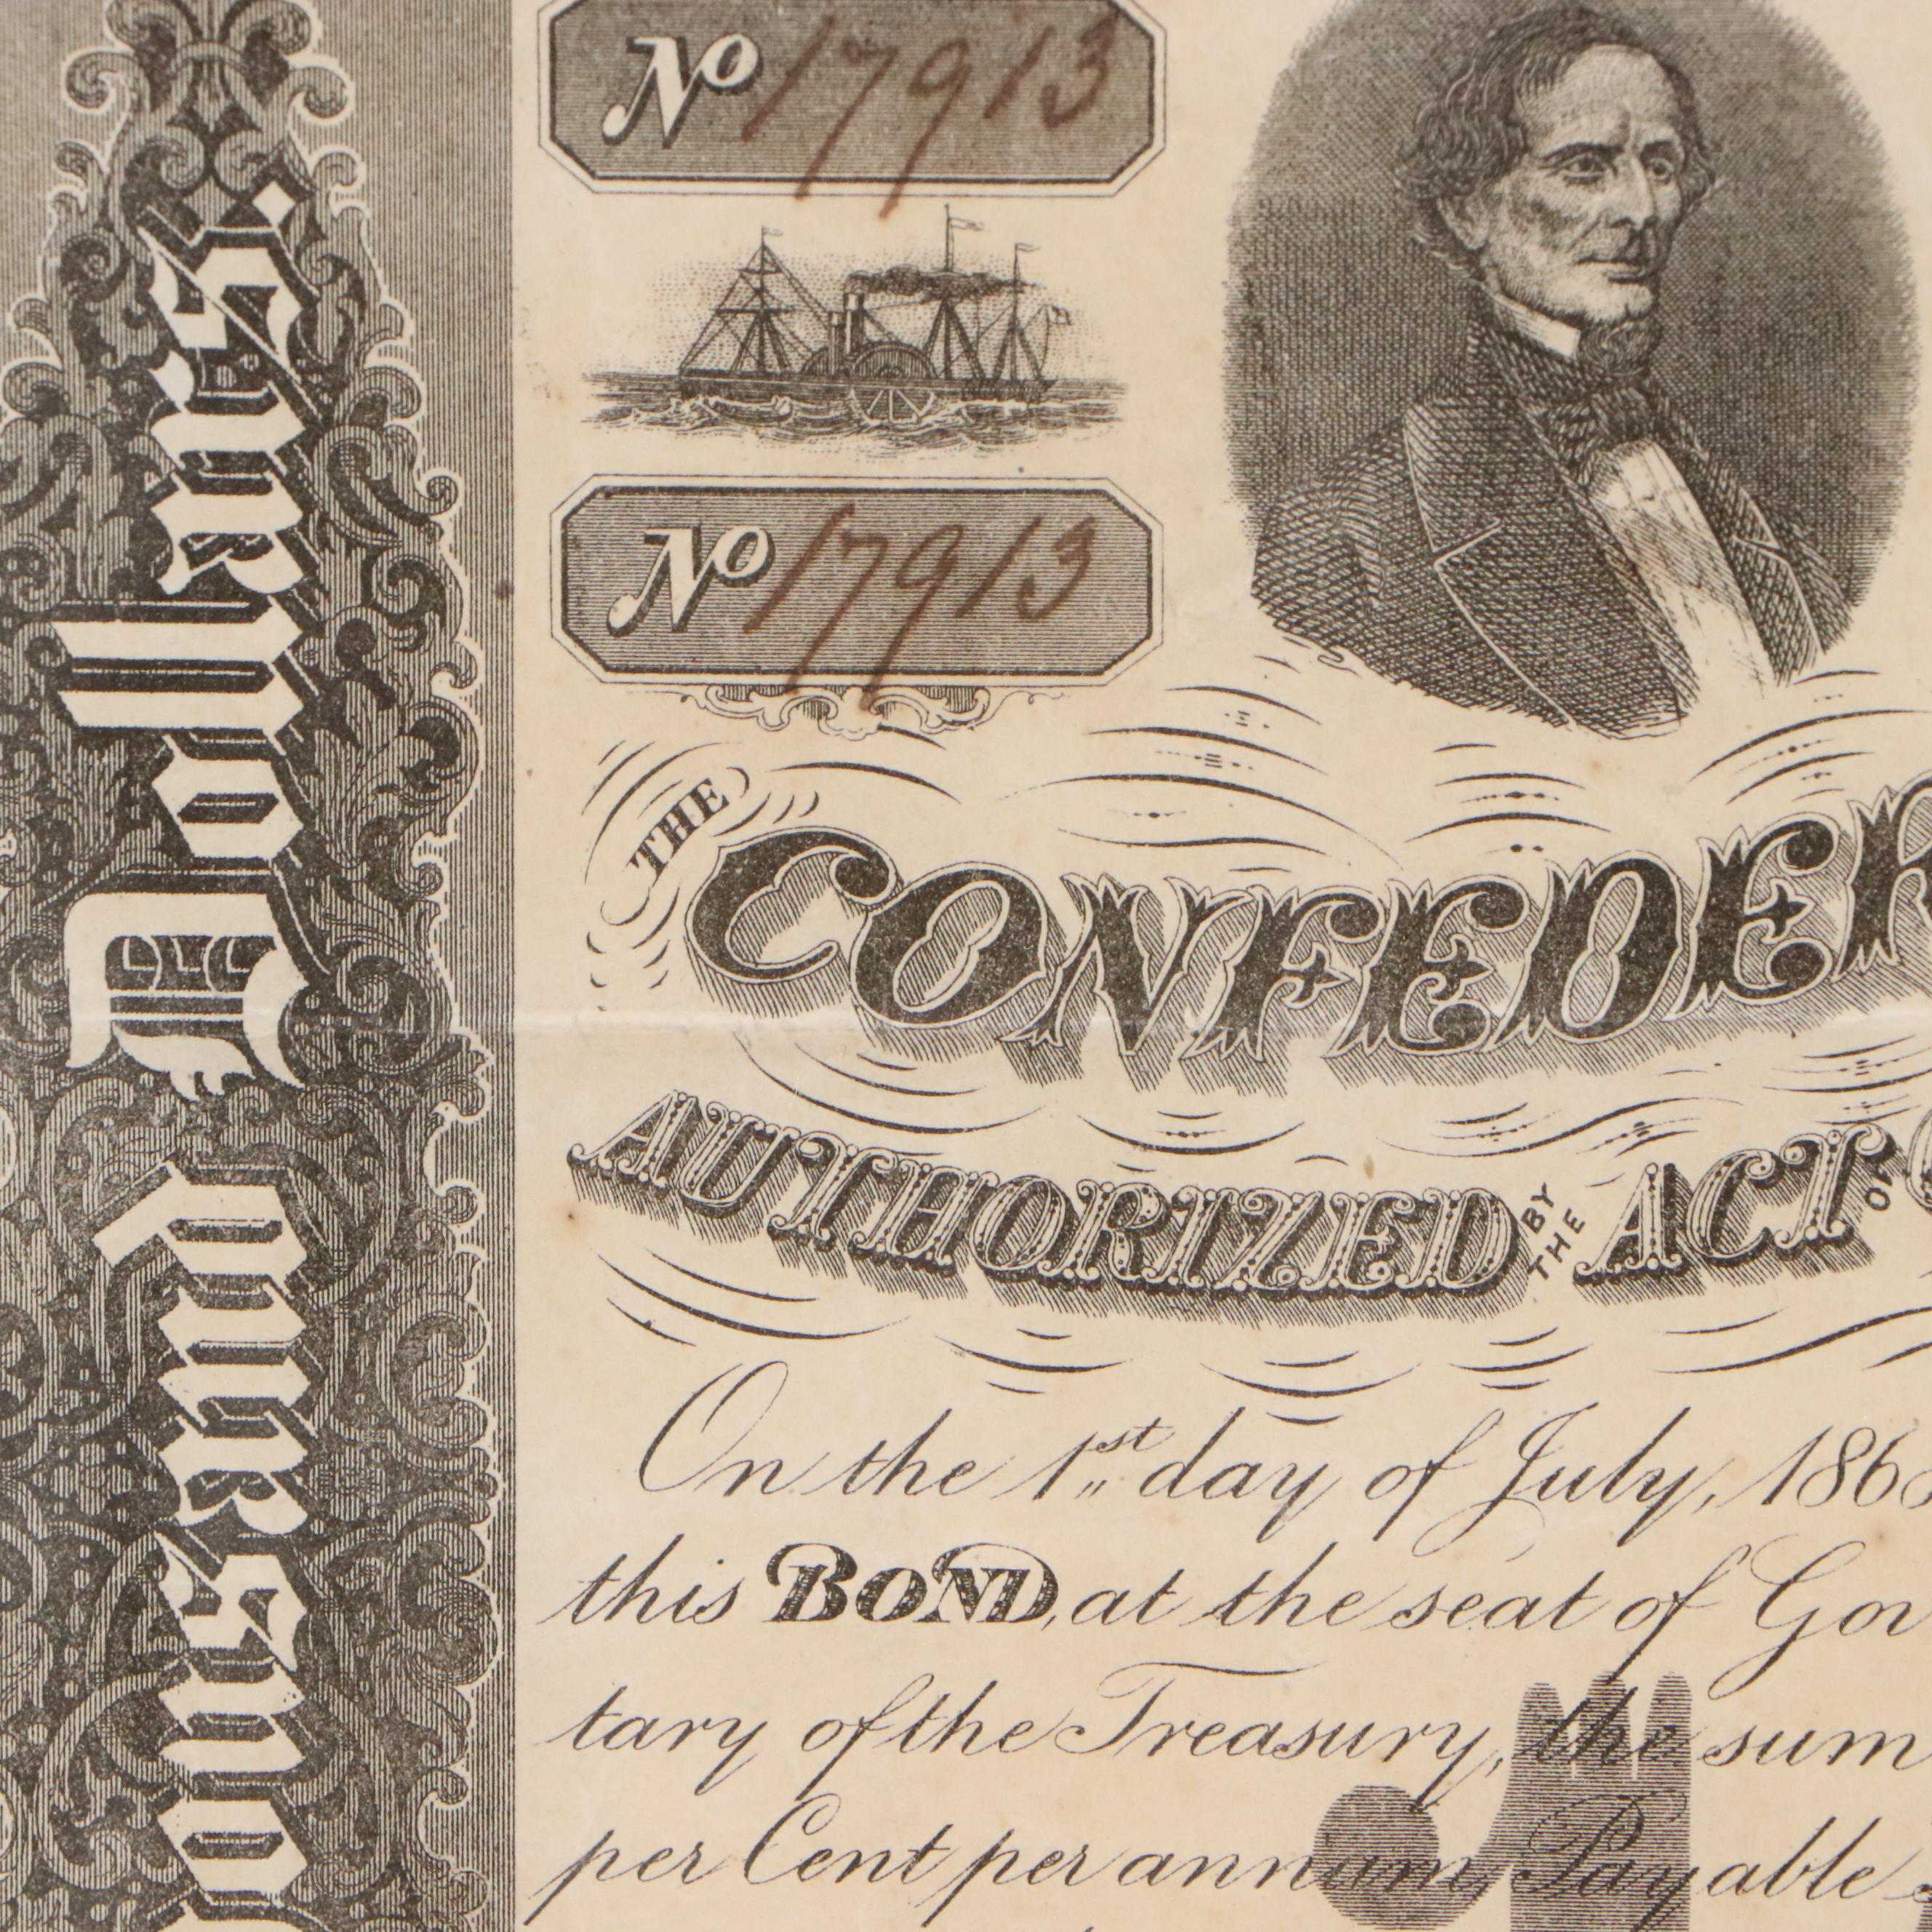 No 17913
No 17913
THE CONFEDER
AUTHORIZED BY THE ACT OF
On the 1st day of July, 186
this BOND, at the seat of Gov
tary of the Treasury, the sum
per Cent per annum, Payable
ousand Dollars.